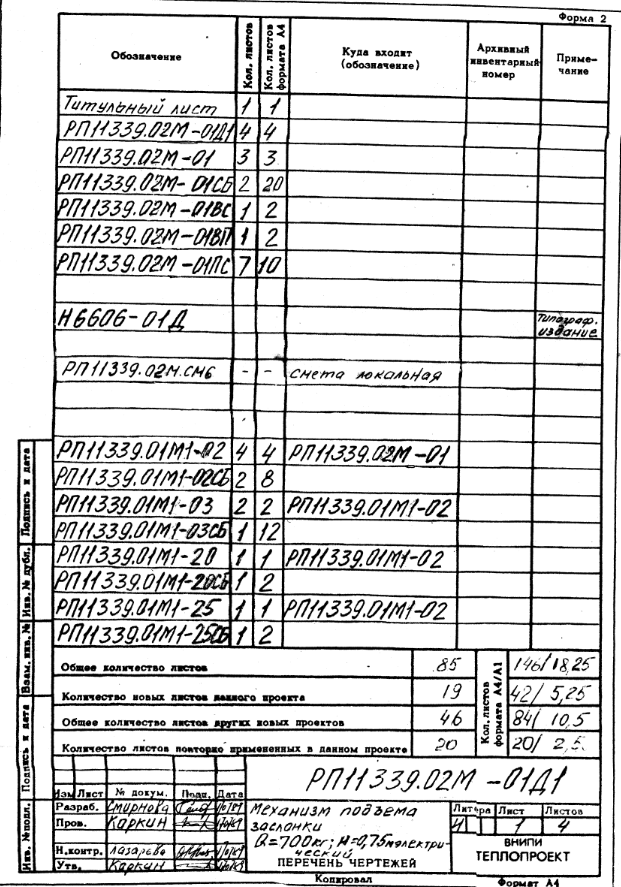 Форма 2
Обозначение Кол. листов Кол. листов формата А4 Куда входит (обозначение) Архивный инвентарный номер Примечание
Титульный лист 1 1
РП11339.02М-01Д1 4 4
РП11339.02М-01 3 3
РП11339.02М-01СБ 2 20
РП11339.02М-01ВС 1 2
РП11339.02М-01ВП 1 2
РП11339.02М-01ПС 7 10
Н6606-01Д Типограф. издание
РП11339.02М.СМ6 - - смета локальная
РП11339.01М1-02 4 4 РП11339.02М-01
РП11339.01М1-02СБ 2 8
РП11339.01М1-03 2 2 РП11339.01М1-02
РП11339.01М1-03СБ 1 12
РП11339.01М1-20 1 1 РП11339.01М1-02
РП11339.01М1-20СБ 1 2
РП11339.01М1-25 1 1 РП11339.01М1-02
РП11339.01М1-25СБ 1 2
Общее количество листов 85 146/18,25
Количество новых листов данного проекта 19 42/ 5,25
Общее количество листов других новых проектов 46 84/ 10,5
Количество листов повторно примененных в данном проекте 20 20/ 2,5
Кол. листов формата А4/А1
Инв. № подл. Подпись и дата Взам. инв. № Инв. № дубл. Подпись и дата
РП11339.02М-01Д1
Изм Лист № докум. Подп. Дата
Разраб. Смирнова
Пров. Каркин
Н.контр. Лазарева
Утв. Каркин
Механизм подъема
заслонки
Q=700кг; H=0,75м электри-
ческий
ПЕРЕЧЕНЬ ЧЕРТЕЖЕЙ
Литера Лист Листов
И 1 4
ВНИПИ
ТЕПЛОПРОЕКТ
Копировал Формат А4